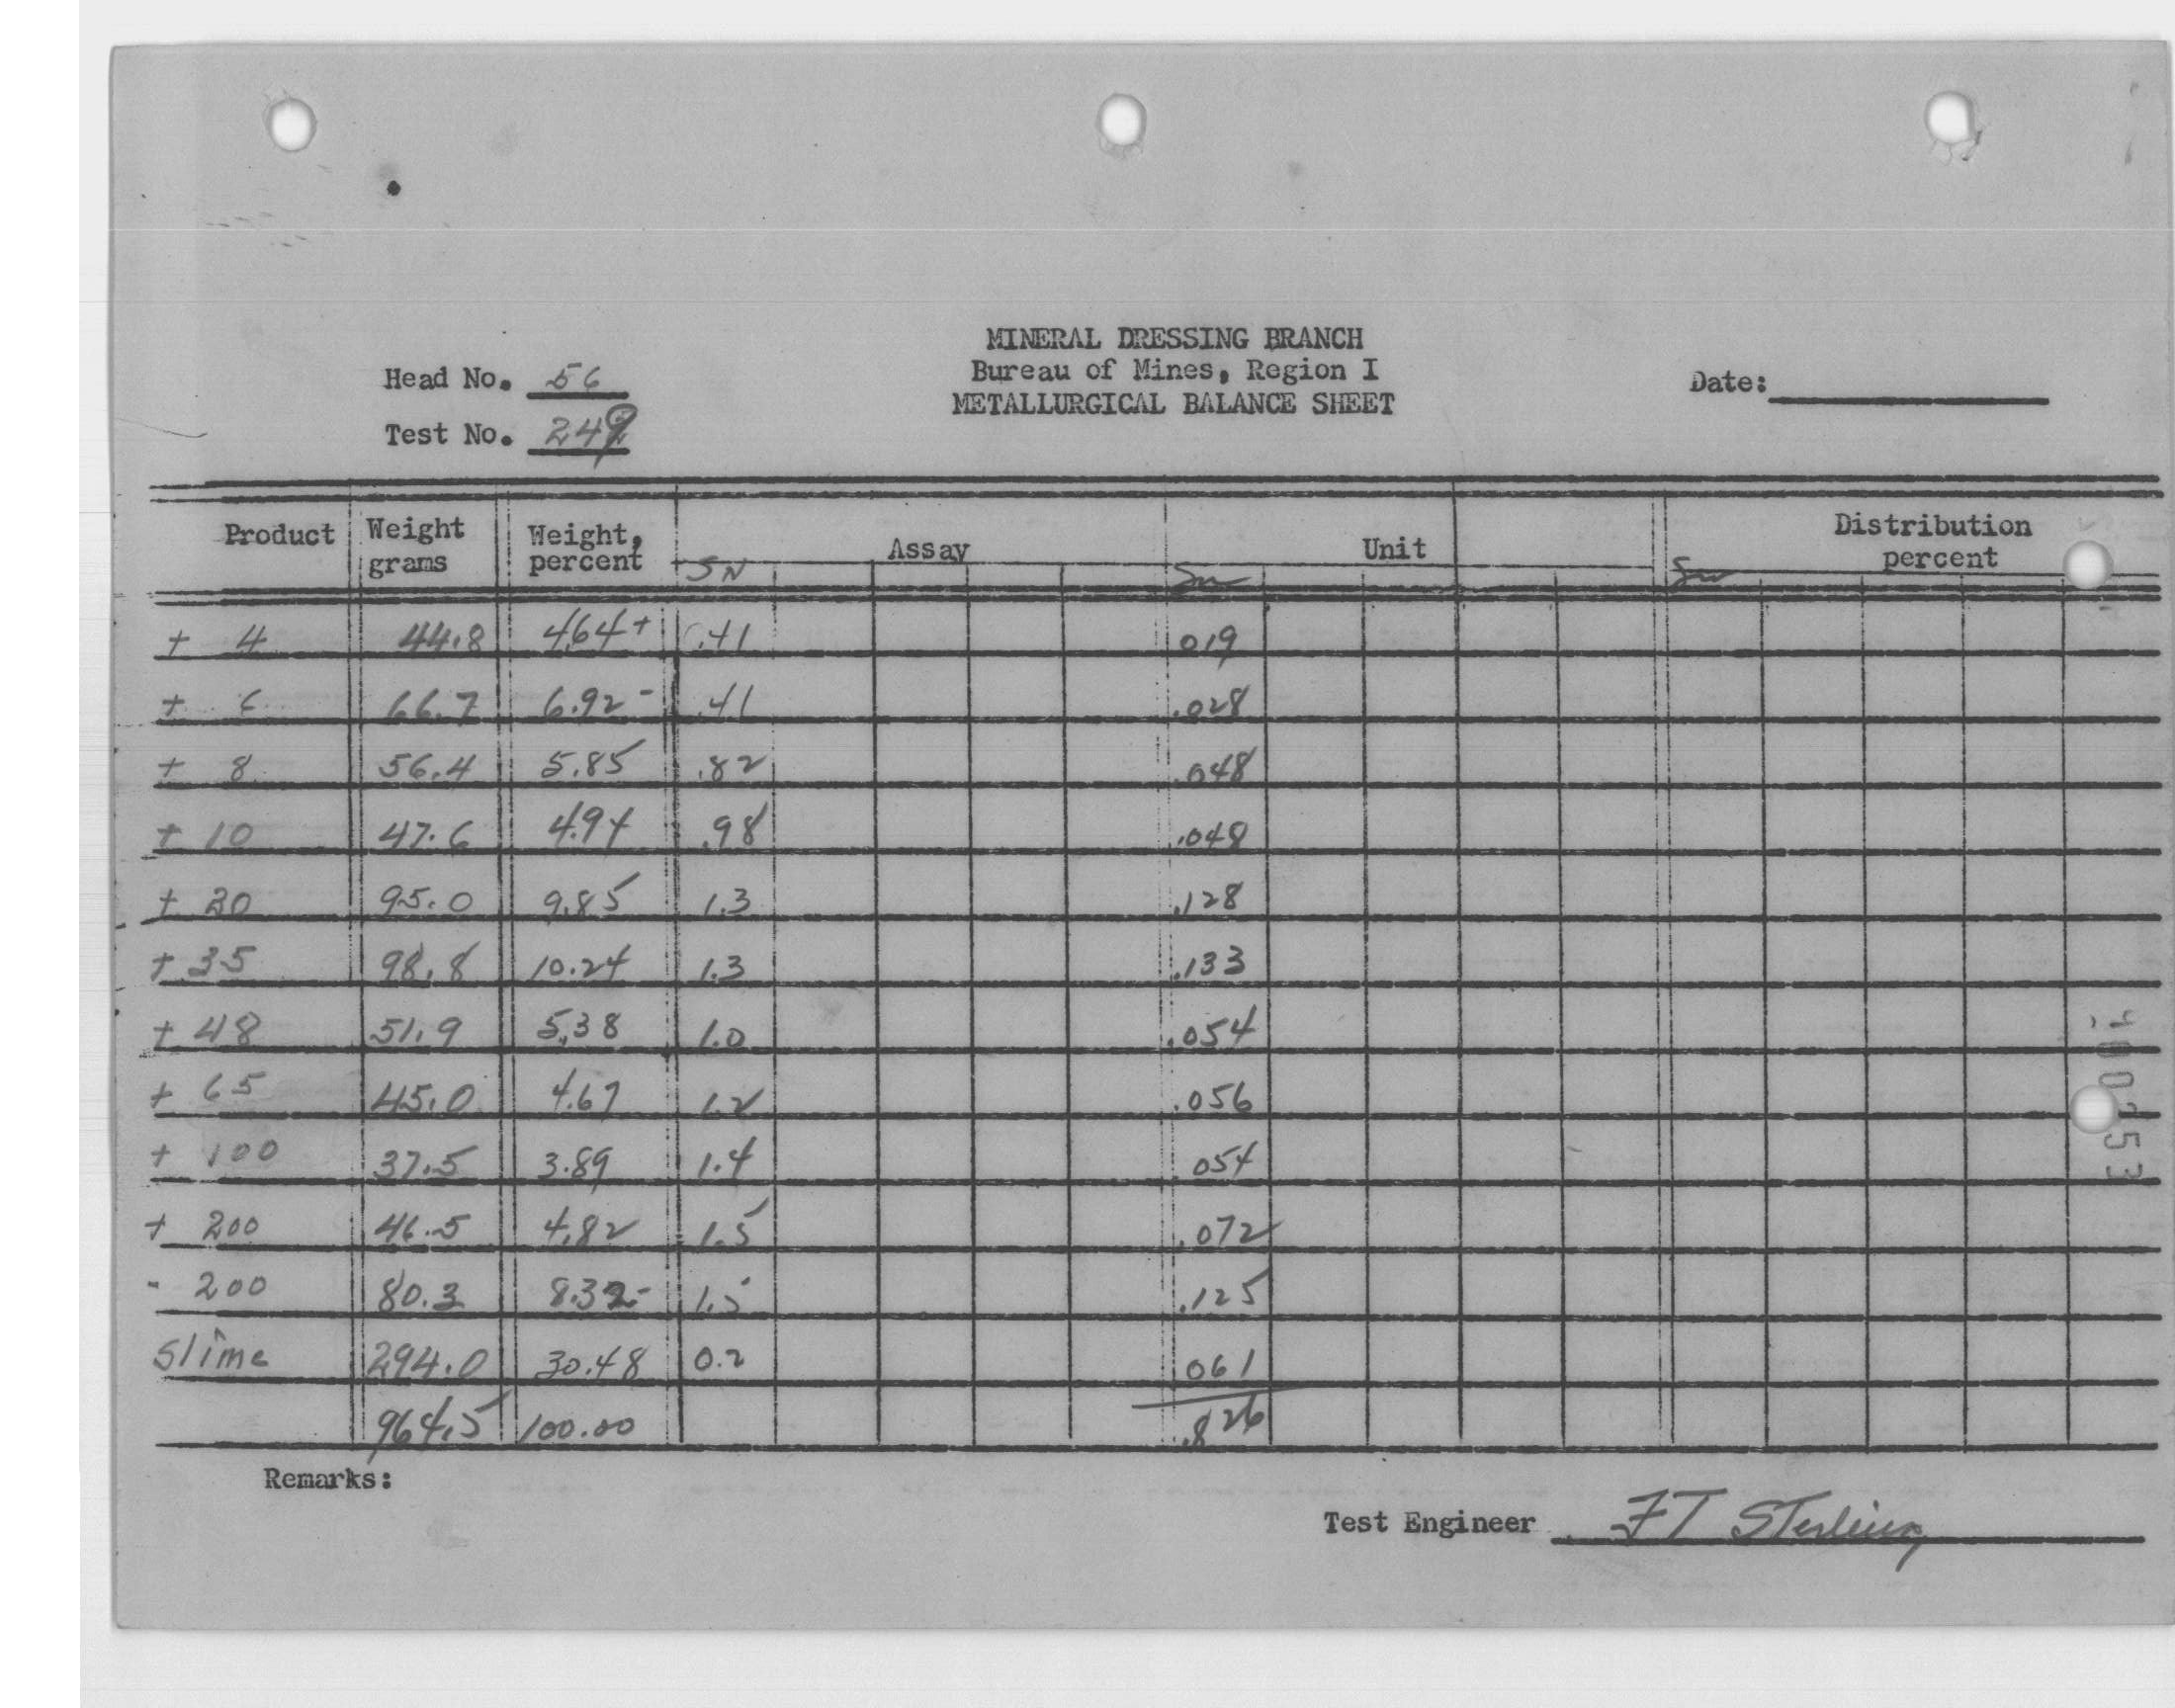 MINERAL DRESSING BRANCH
Head No. 56 Bureau of Mines, Region I Date:
METALLURGICAL BALANCE SHEET
Test No. 249
Product Weight grams Weight, percent Assay Unit Distribution percent
SN Sn Sn
+ 4 44.8 4.64+ .41 .019
+ 6 66.7 6.92- .41 .028
+ 8 56.4 5.85 .82 .048
+ 10 47.6 4.94 .98 .048
+ 20 95.0 9.85 1.3 .128
+ 35 98.8 10.24 1.3 .133
+ 48 51.9 5.38 1.0 .054
+ 65 45.0 4.67 1.2 .056
+ 100 37.5 3.89 1.4 .054
+ 200 46.5 4.82 1.5 .072
- 200 80.3 8.32- 1.5 .125
Slime 294.0 30.48 0.2 .061
964.5 100.00 .826
Remarks:
Test Engineer FT Sterling